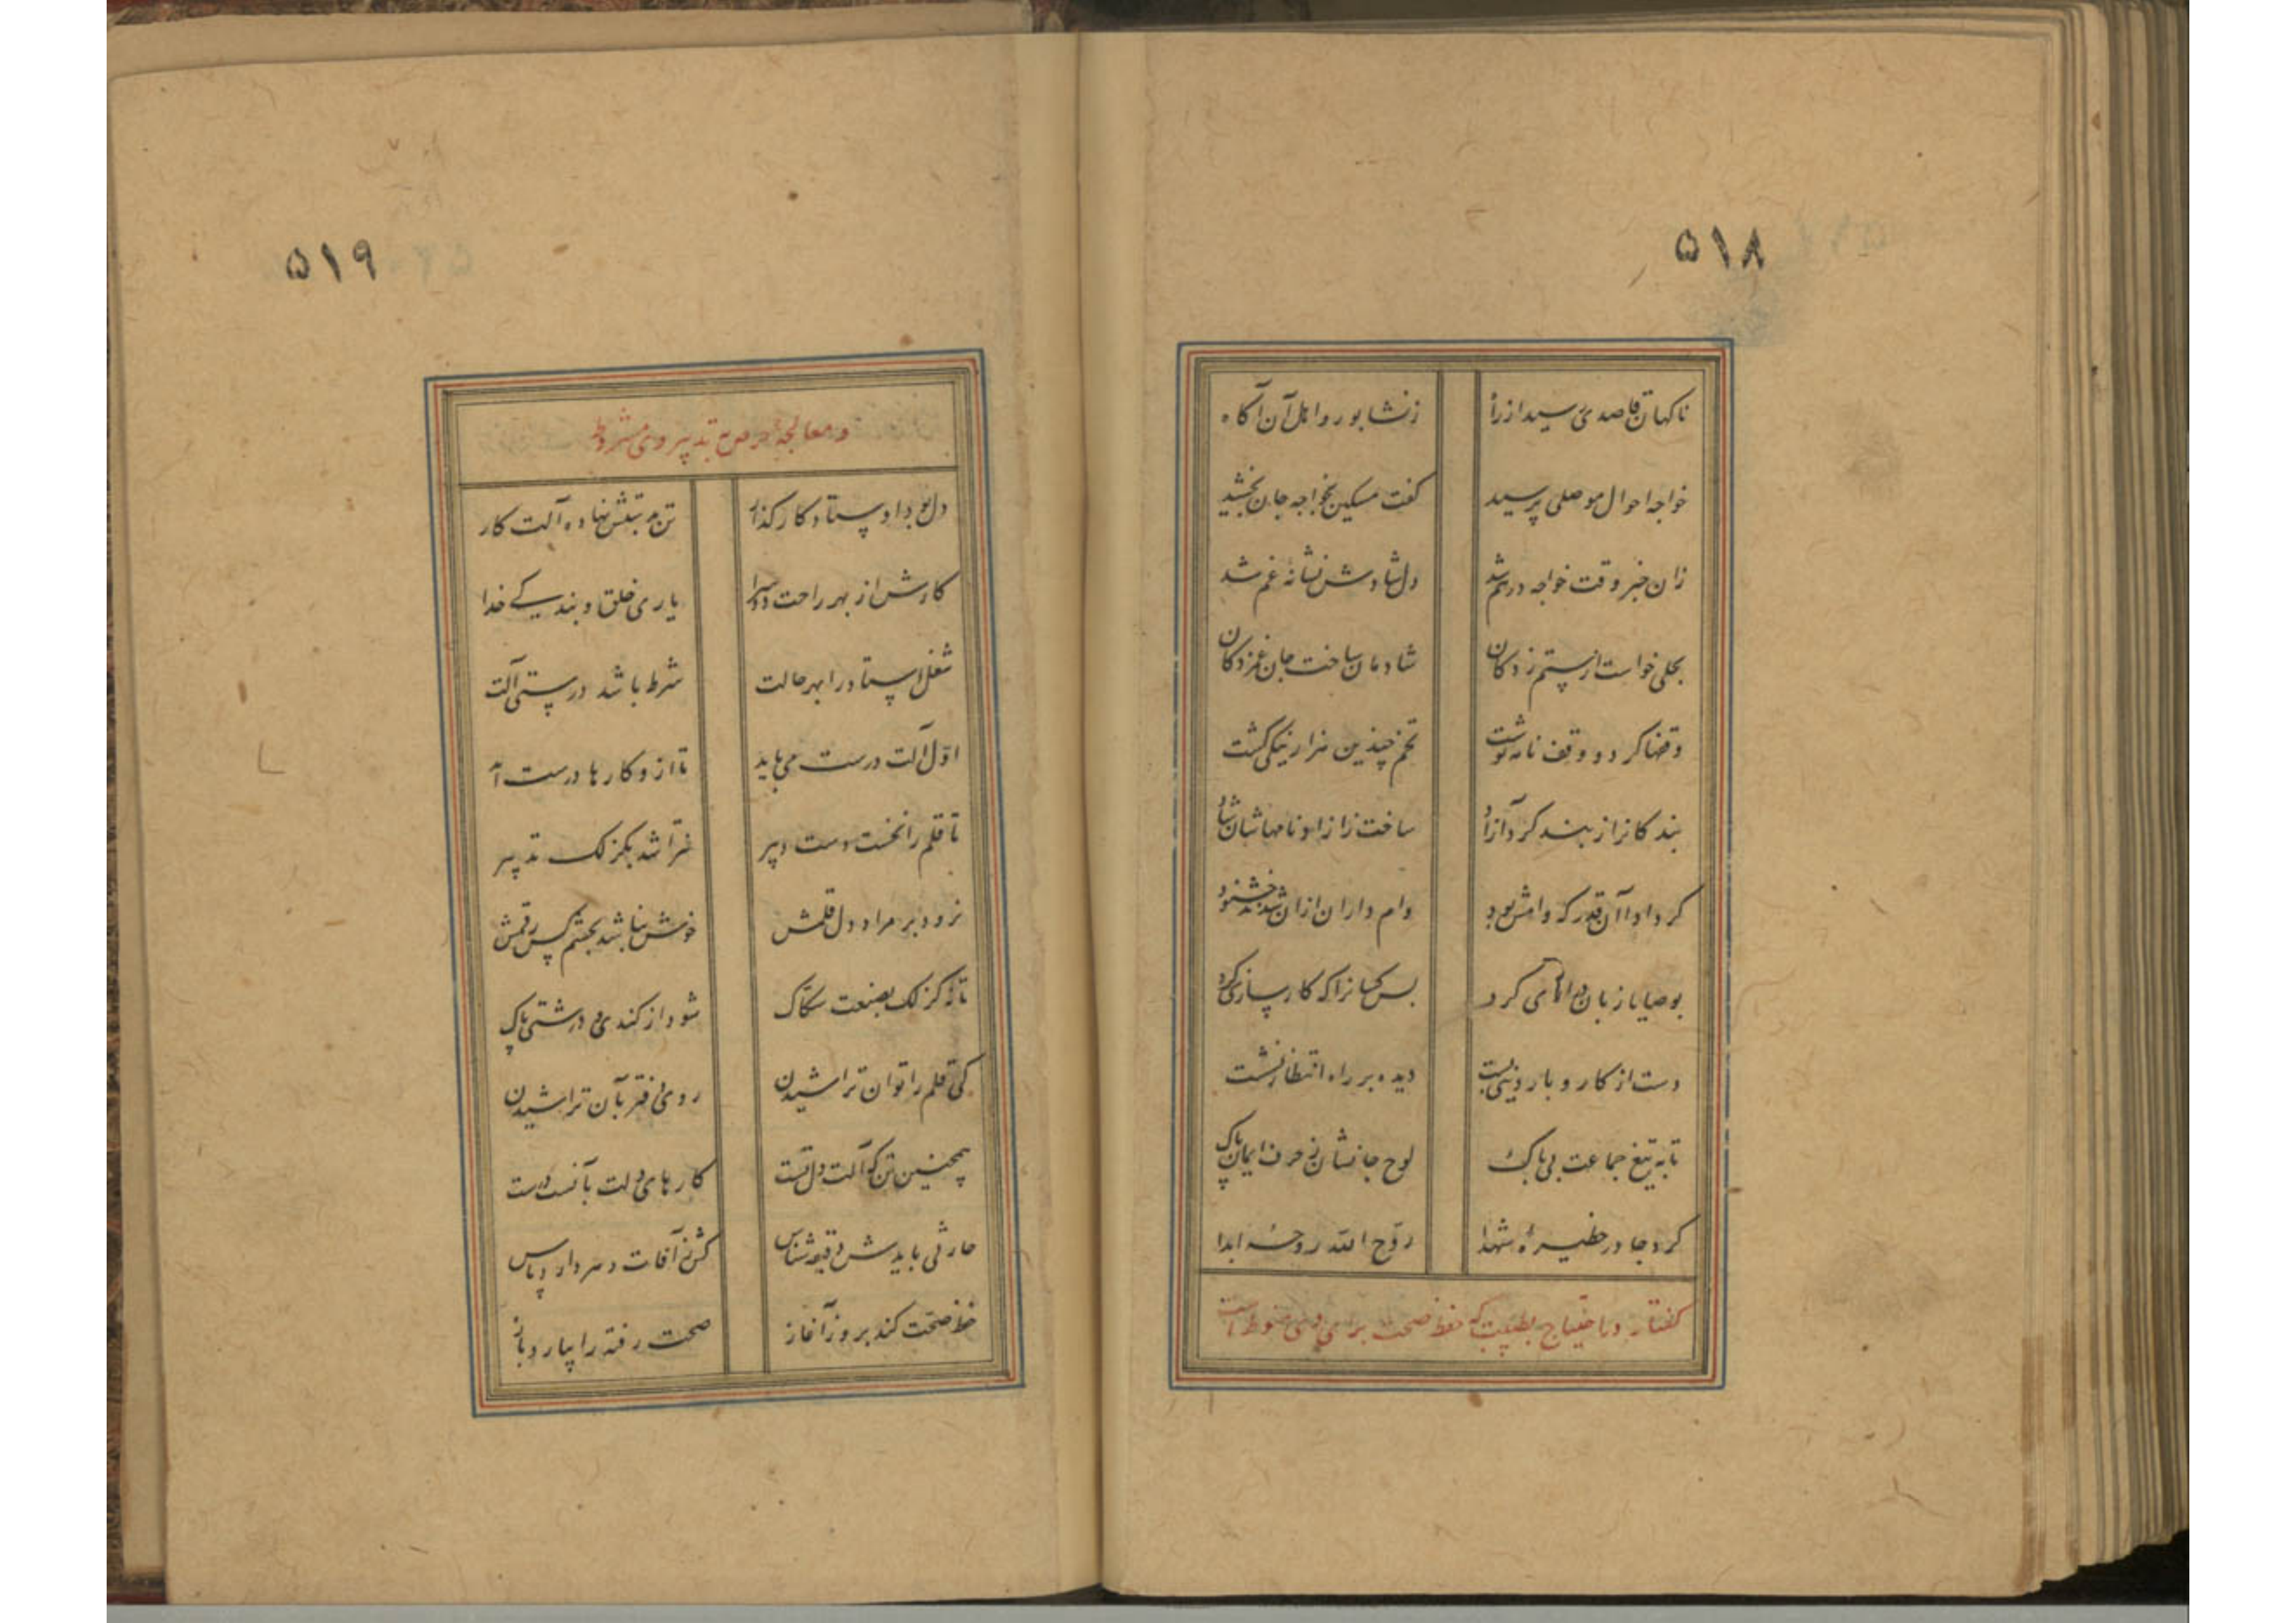 ۵۱۸
ناکهان قاصدی رسید از راه زنشابور و اهل آن آکاه
خواجه احوال موصلی پرسید کفت مسکین بخواجه جان بخشید
زان خبر وقت خواجه درهم شد دل شادش نشانهٔ غم شد
بحلی خواست از ستم زدکان شادمان ساخت جان غمزدکان
وقفها کرد و وقف نامه نوشت تخم چندین هزار نیکی کشت
بندکانرا ز بند کرد آزاد ساخت زازادنامهاشان شاد
کرد ادا آن قدر که وامش بود وام داران ازان شدند خشنود
بوصایا زبان درازی کرد بس کسانرا که کارسازی کرد
دست از کار و بار دنیی بست دیده بر راه انتظار نشست
تا به تیغ جماعت بی باک لوح جانشان ز حرف ایمان پاک
کرد جا در حظیرهٔ شهدا روّح الله روحه ابدا
کفتار در احتیاج بطبیب که حفظ صحت برای وی منوط است
۵۱۹
و معالجهٔ مرض به تدبیر وی مشروط
دل بود اوستاد کارکذار تن بدستش نهاده آلت کار
کارش از بهر راحت دوسرا یاری خلق و بندکی خدا
شغل استاد را بهر حالت شرط باشد درستی آلت
اوّل آلت درست می باید تا ازو کارها درست آید
تا قلم را نخست دست دبیر نتراشد بکزلک تدبیر
نرود بر مراد دل قلمش خوش نباشد بچشم کس رقمش
تا نه کزلک بصنعت سکاک شود از کندی و درشتی پاک
کی قلم را توان تراشیدن روی دفتر بآن تراشیدن
همچنین تن که آلت دل تست کارهای دلت بآنست درست
حارثی بایدش دقیقه شناس کش ز آفات دهر دارد پاس
حفظ صحت کند بروز آغاز صحت رفته را بیارد باز